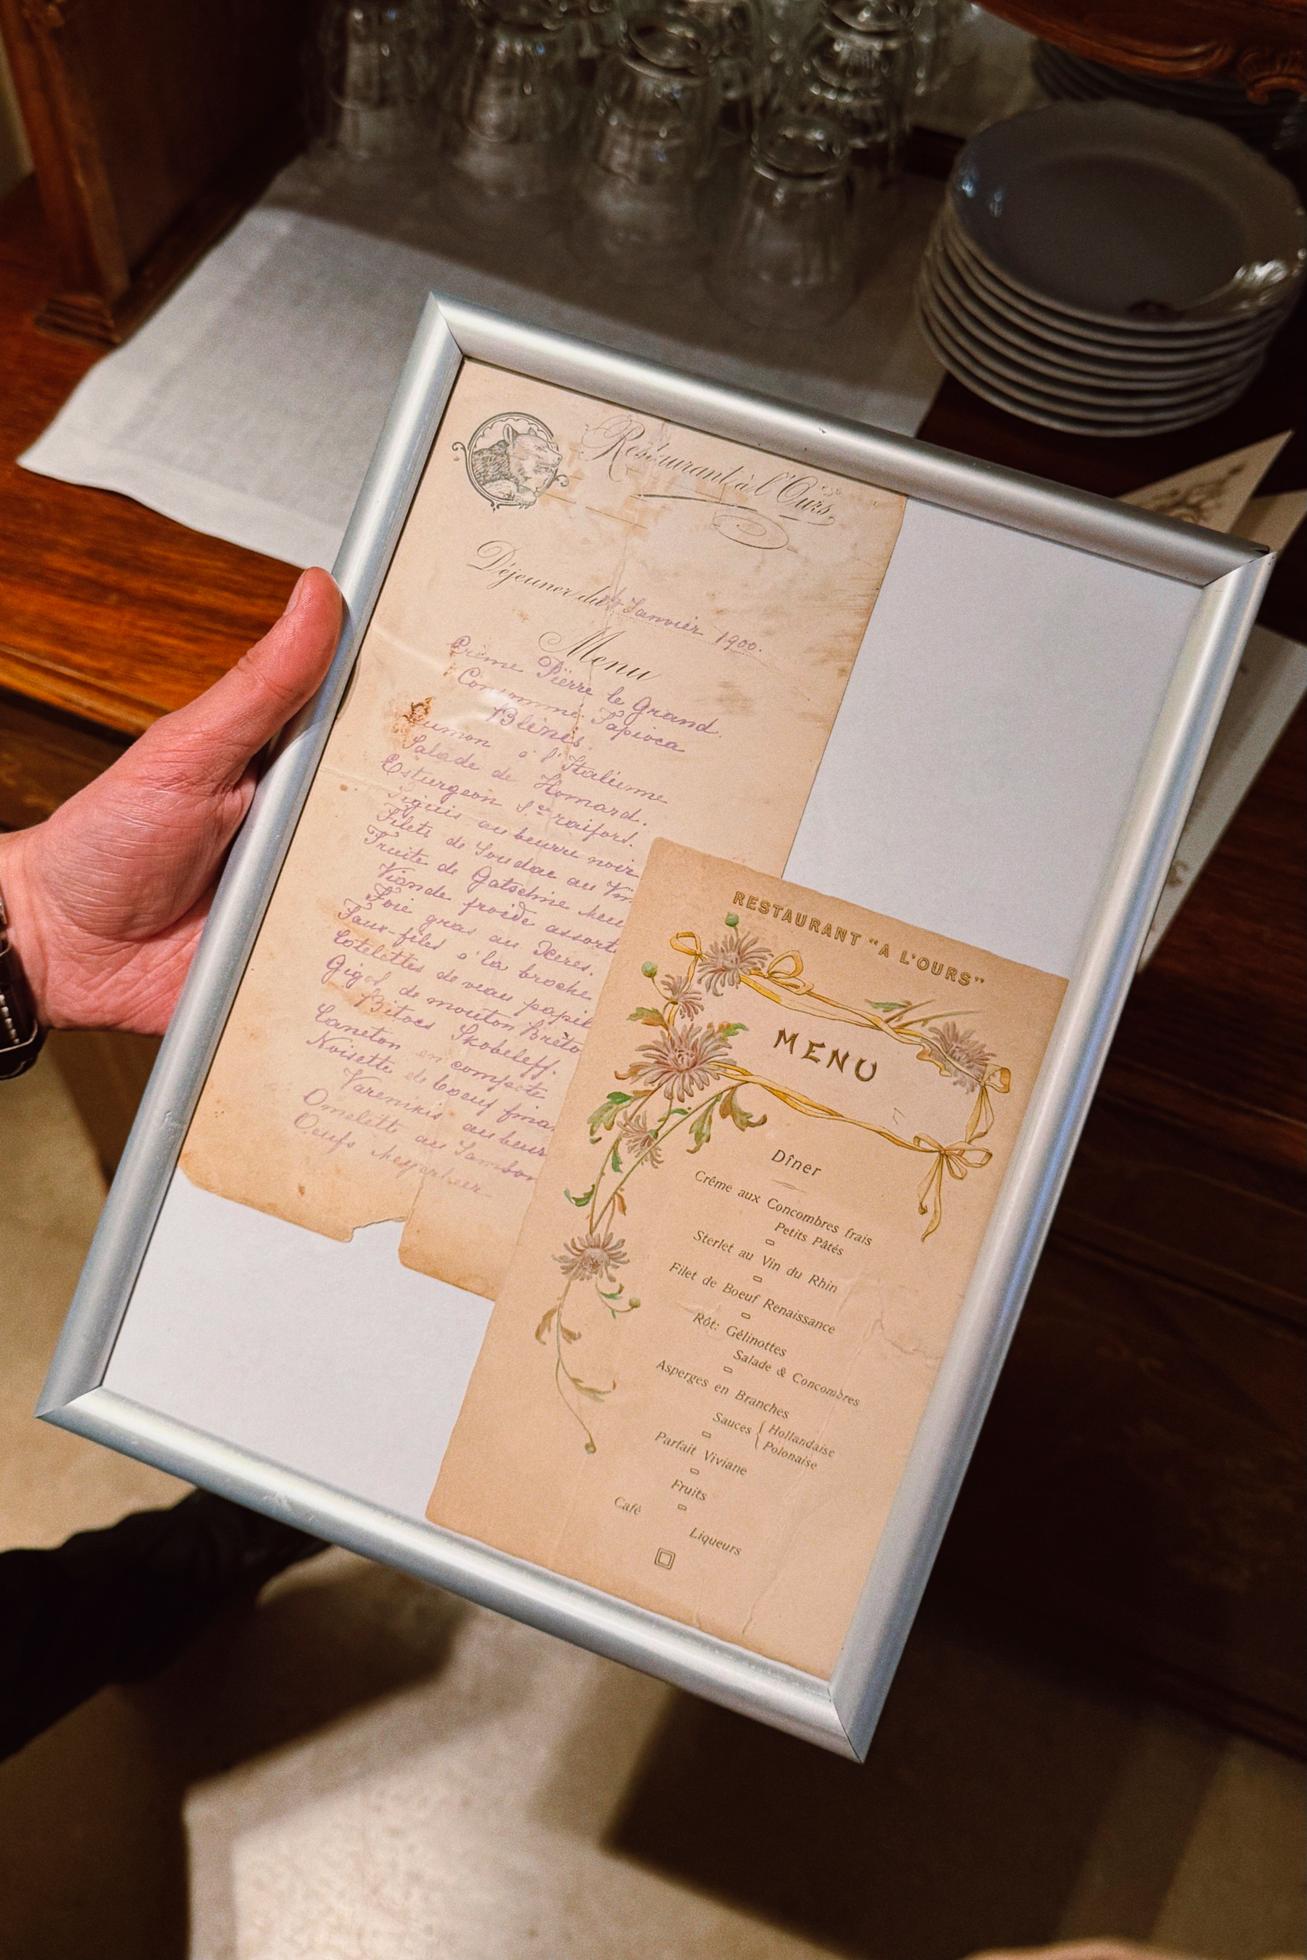 Restaurant à l'Ours
Déjeuner du Janvier 1900.
Menu
Crème Pierre le Grand.
Consommé Tapioca
Blinis.
à l'Italienne
Salade de Homard.
Esturgeon S-ce raifort.
Siguis au beurre noir
Filets de Soudac au
Truite de Gatschine
Viande froide assort
Foie gras au Xeres.
Faux-files à la broche
Cotelettes de veau papil
Gigot de mouton Breto
Bitocs Skobeleff.
Caneton en compote
Noisette de boeuf fina
Varenikis au beur
Omelette au Jambon
Oeufs Meyerbeer
RESTAURANT "A L'OURS"
MENU
Dîner
Crême aux Concombres frais
Petits Pâtés
Sterlet au Vin du Rhin
Filet de Boeuf Renaissance
Rôt: Gélinottes
Salade & Concombres
Asperges en Branches
Sauces { Hollandaise
Polonaise
Parfait Viviane
Fruits
Café
Liqueurs